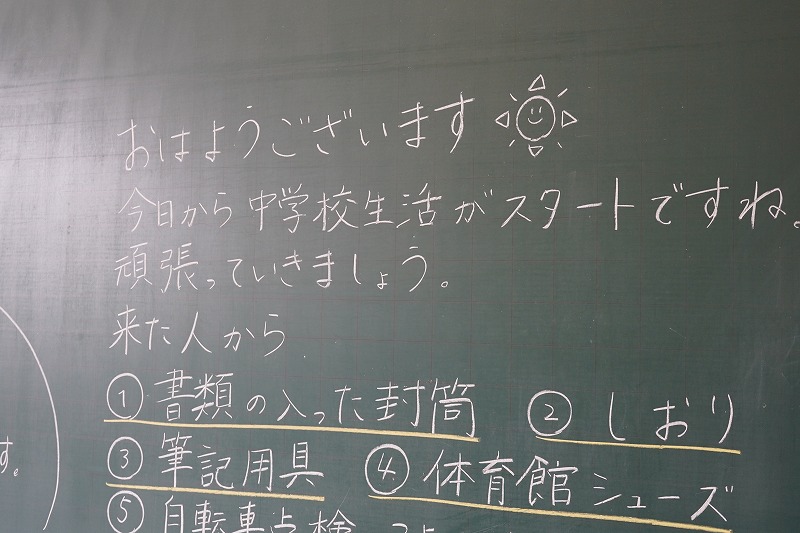 おはようございます
今日から中学校生活がスタートですね。
頑張っていきましょう。
来た人から
①書類の入った封筒 ②しおり
③筆記用具 ④体育館シューズ
⑤自転車点検
す。